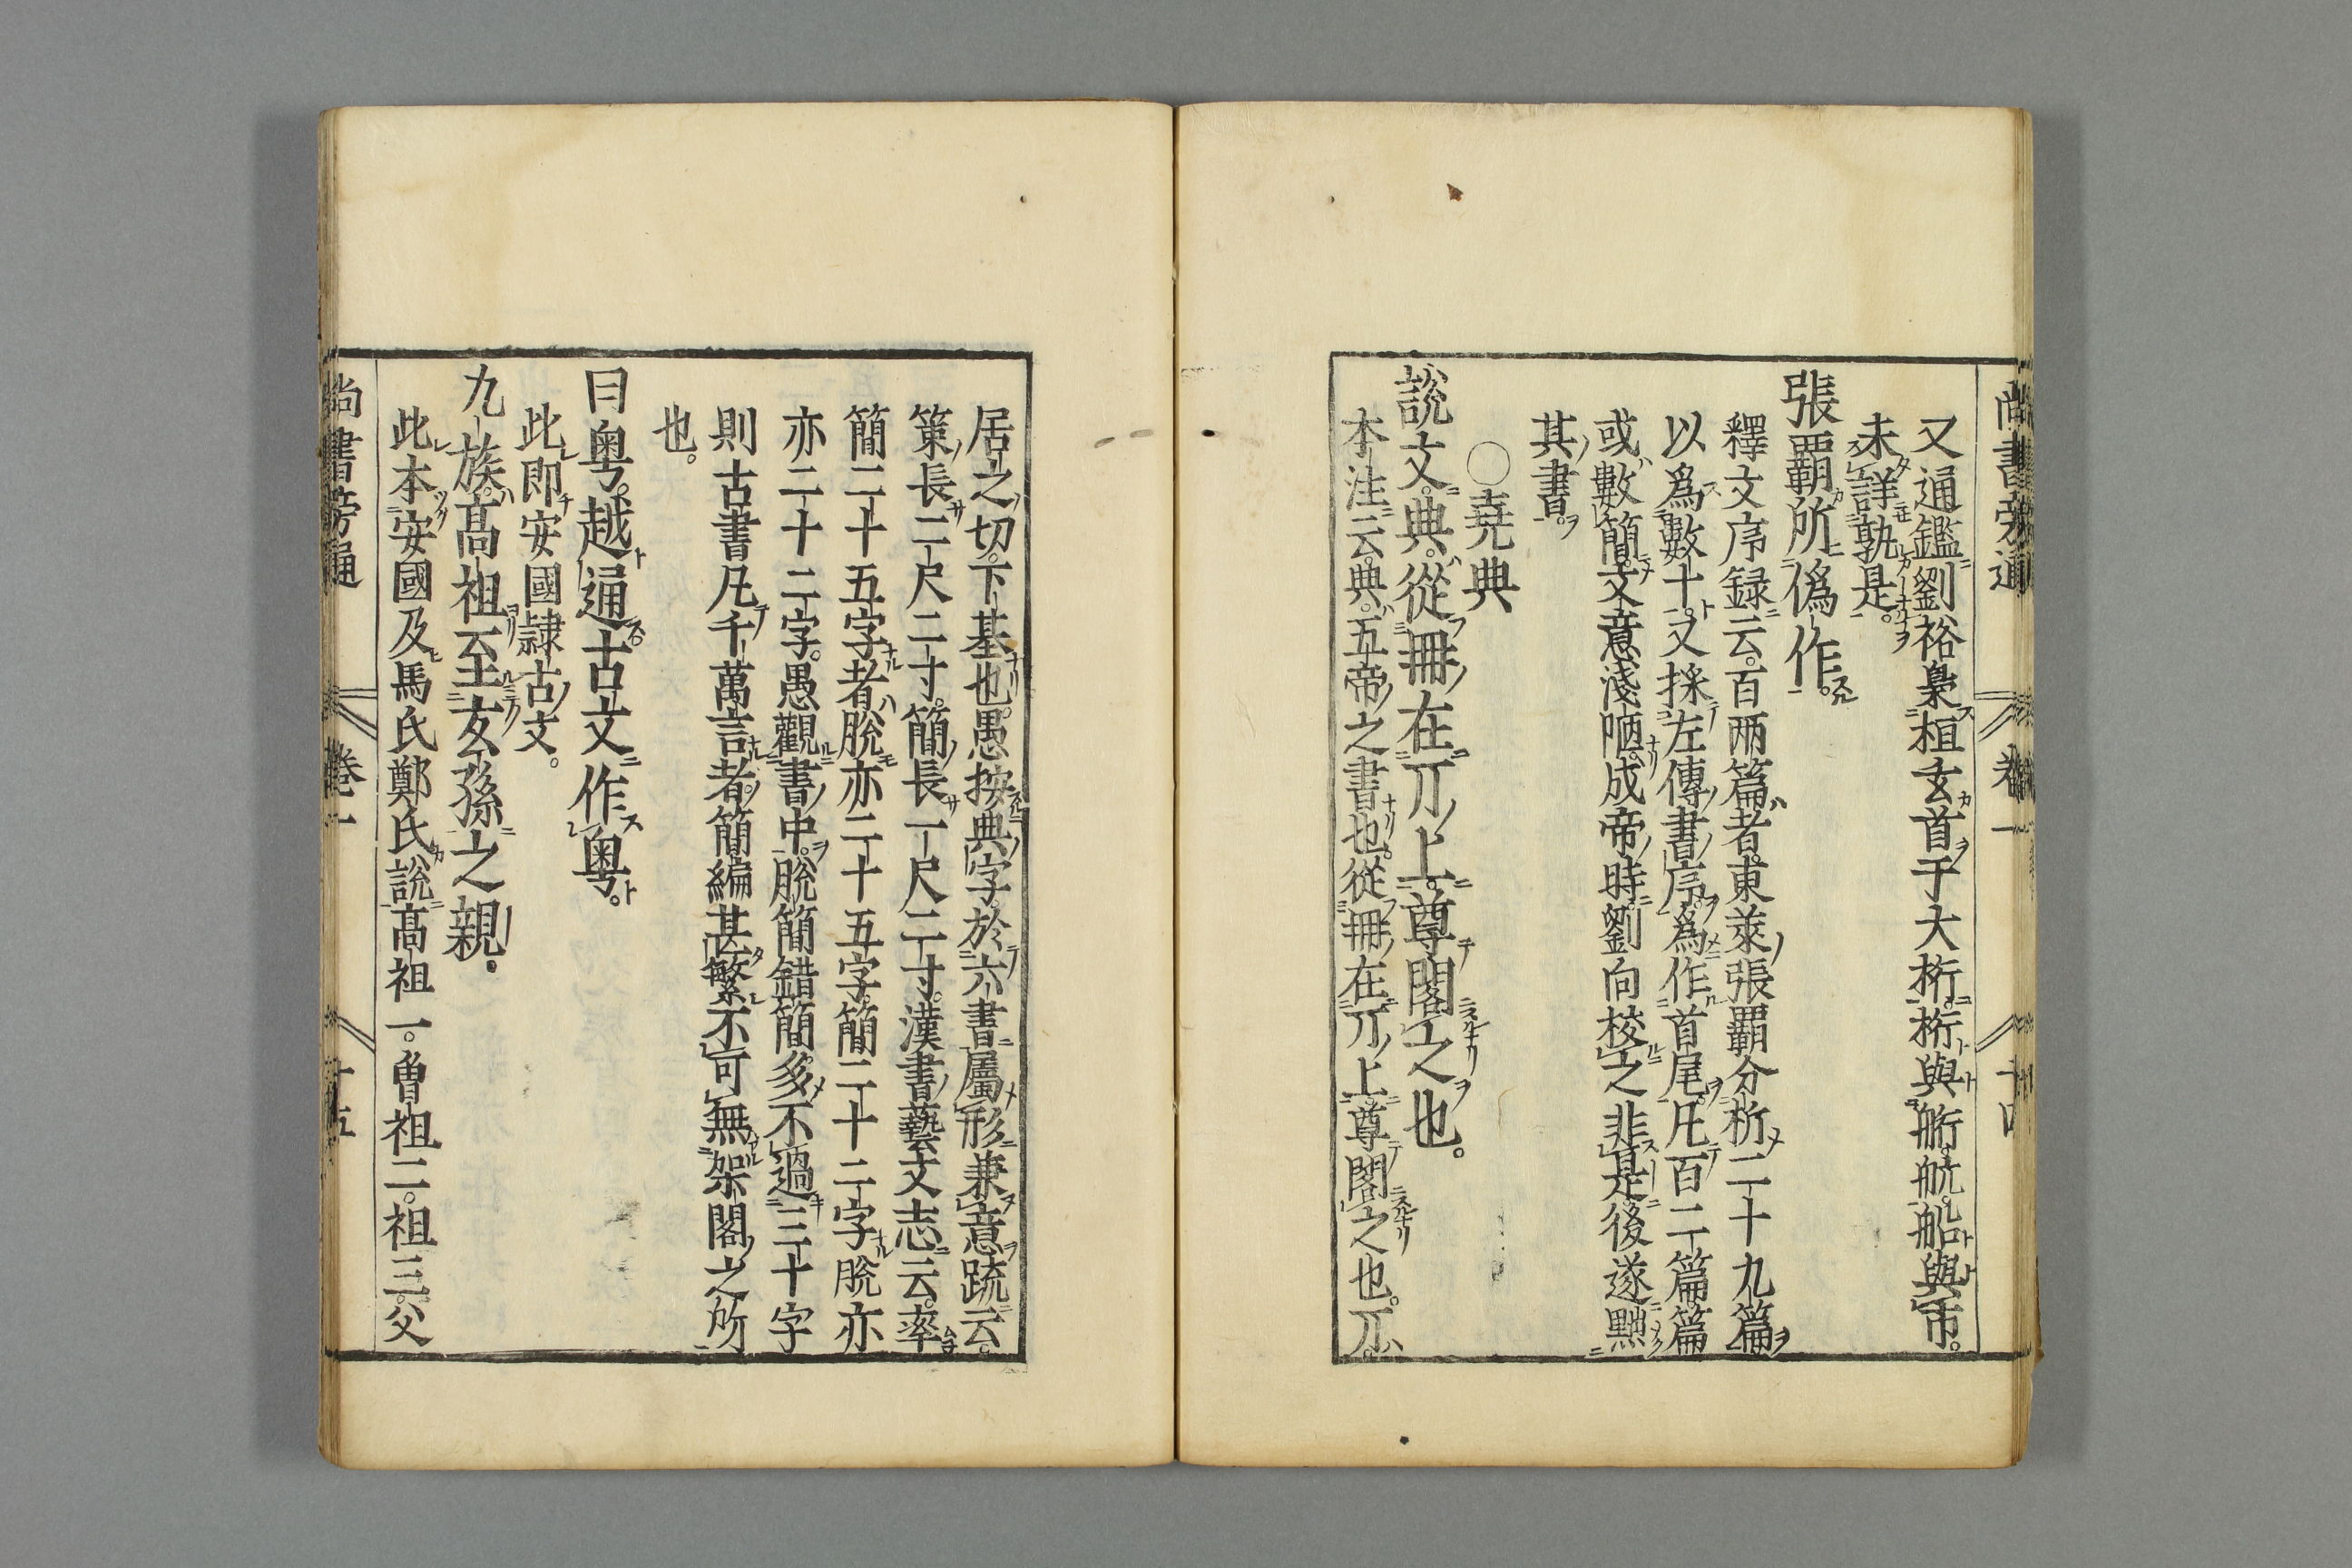 尚書旁通 卷一 十四
又通鑑劉裕梟桓玄首于大桁桁與䑪航船與市。
未詳孰是。
張覇所僞作。
釋文序録云。百兩篇者。東萊張覇分析二十九篇
以爲數十。又採左傳書序。爲作首尾。凡百二篇。篇
或數簡。文意淺陋。成帝時劉向校之。非是。後遂黜
其書。
〇堯典
說文。典。從冊在丌上。尊閣之也。
本注云。典。五帝之書也。從冊在丌上。尊閣之也。丌。
居之切。下基也。愚按典字。於六書屬形兼意。疏云。
策長二尺二寸。簡長一尺二寸。漢書藝文志云。率
簡二十五字者。脫亦二十五字。簡二十二字脫亦
亦二十二字。愚觀書中。脫簡錯簡。多不過三十字
則古書凡千萬言者。簡編甚繁。不可無架閣之所
也。
曰粤。越通。古文作粤。
此即安國隷古文。
九族。髙祖至玄孫之親。
此本安國及馬氏鄭氏說。髙祖一。曽祖二。祖三。父
尚書旁通 卷一 十五